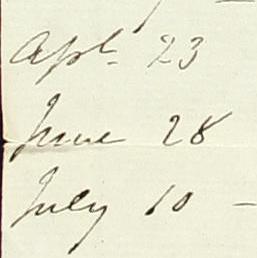 Apl 23
June 28
July 10 -